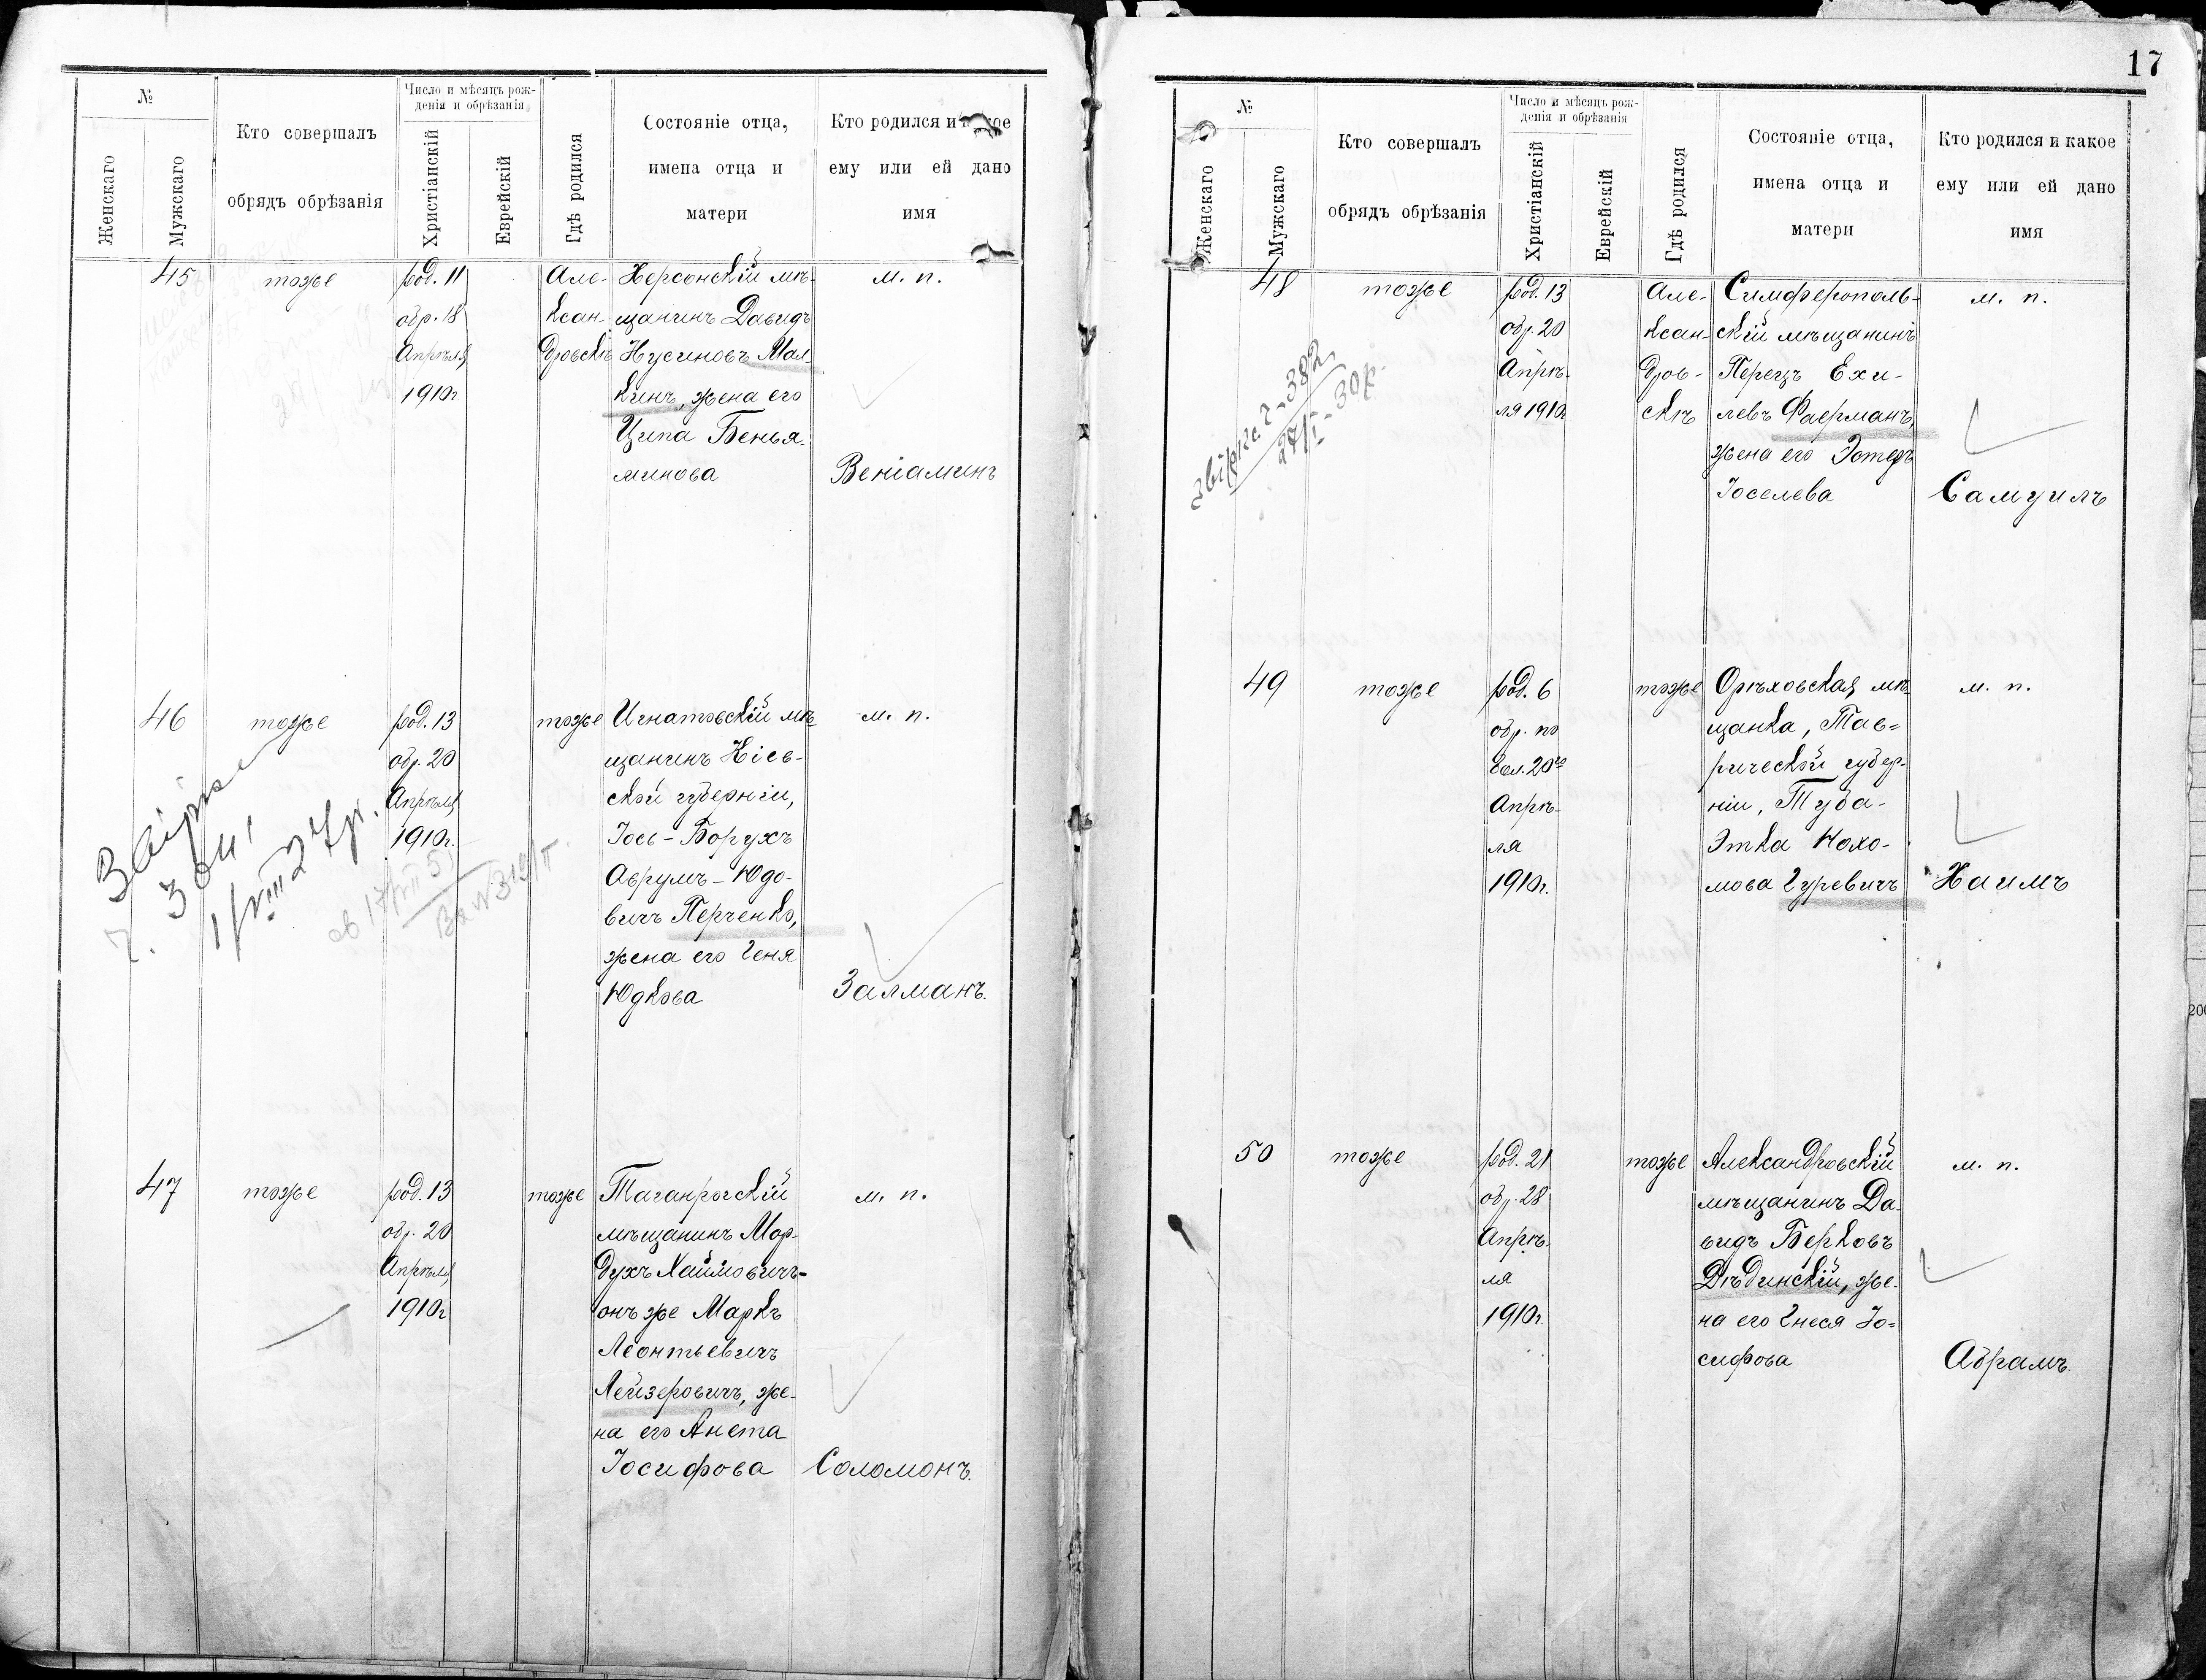 №
Женскаго
Мужскаго
Кто совершалъ
обрядъ обрѣзанія
Число и мѣсяцъ рож-
денія и обрѣзанія
Христіанскій
Еврейскій
Гдѣ родился
Состояніе отца,
имена отца и
матери
Кто родился и
ему или ей дано
имя
45
тоже
род. 11
обр. 18
Апрѣля
1910г
Але-
ксан-
дровскѣ
Херсонскій мѣ-
щанинъ Давидъ
Нусиновъ Мал-
кинъ, жена его
Ципа Бенья-
минова
м. п.
Веніаминъ
46
тоже
род. 13
обр. 20
Апрѣля
1910г.
тоже
Игнатовскій мѣ-
щанинъ Кіев-
ской губерніи,
Іось-Борухъ
Аврумъ-Юдо-
вичъ Перченко,
жена его Геня
Юдкова
м. п.
Залманъ.
47
тоже
род. 13
обр. 20
Апрѣля
1910г
тоже
Таганрогскій
мѣщанинъ Мор-
духъ Хаймовичъ-
онъ же Маркъ
Леонтьевичъ
Лейзеровичъ, же-
на его Анета
Іосифова
м. п.
Соломонъ.
17
№
Женскаго
Мужскаго
Кто совершалъ
обрядъ обрѣзанія
Число и мѣсяцъ рож-
денія и обрѣзанія
Христіанскій
Еврейскій
Гдѣ родился
Состояніе отца,
имена отца и
матери
Кто родился и какое
ему или ей дано
имя
48
тоже
род. 13
обр. 20
Апрѣ-
ля 1910г
Але-
ксан-
дров-
скѣ
Симферополь-
скій мѣщанинъ
Перецъ Ехи-
левъ Фаерманъ,
жена его Эстеръ
Іоселева
м. п.
Самуилъ
49
тоже
род. 6
обр. по
бол. 20го
Апрѣ-
ля
1910г.
тоже
Орѣховская мѣ-
щанка, Тав-
рической губер-
ніи, Туба-
Этка Нохо-
мова Гуревичъ
м. п.
Хаимъ
50
тоже
род. 21
обр. 28
Апрѣ-
ля
1910г.
тоже
Александровскій
мѣщанинъ Да-
видъ Берковъ
Дѣдинскій, же-
на его Гнеся Іо-
сифова
м. п.
Абрамъ.